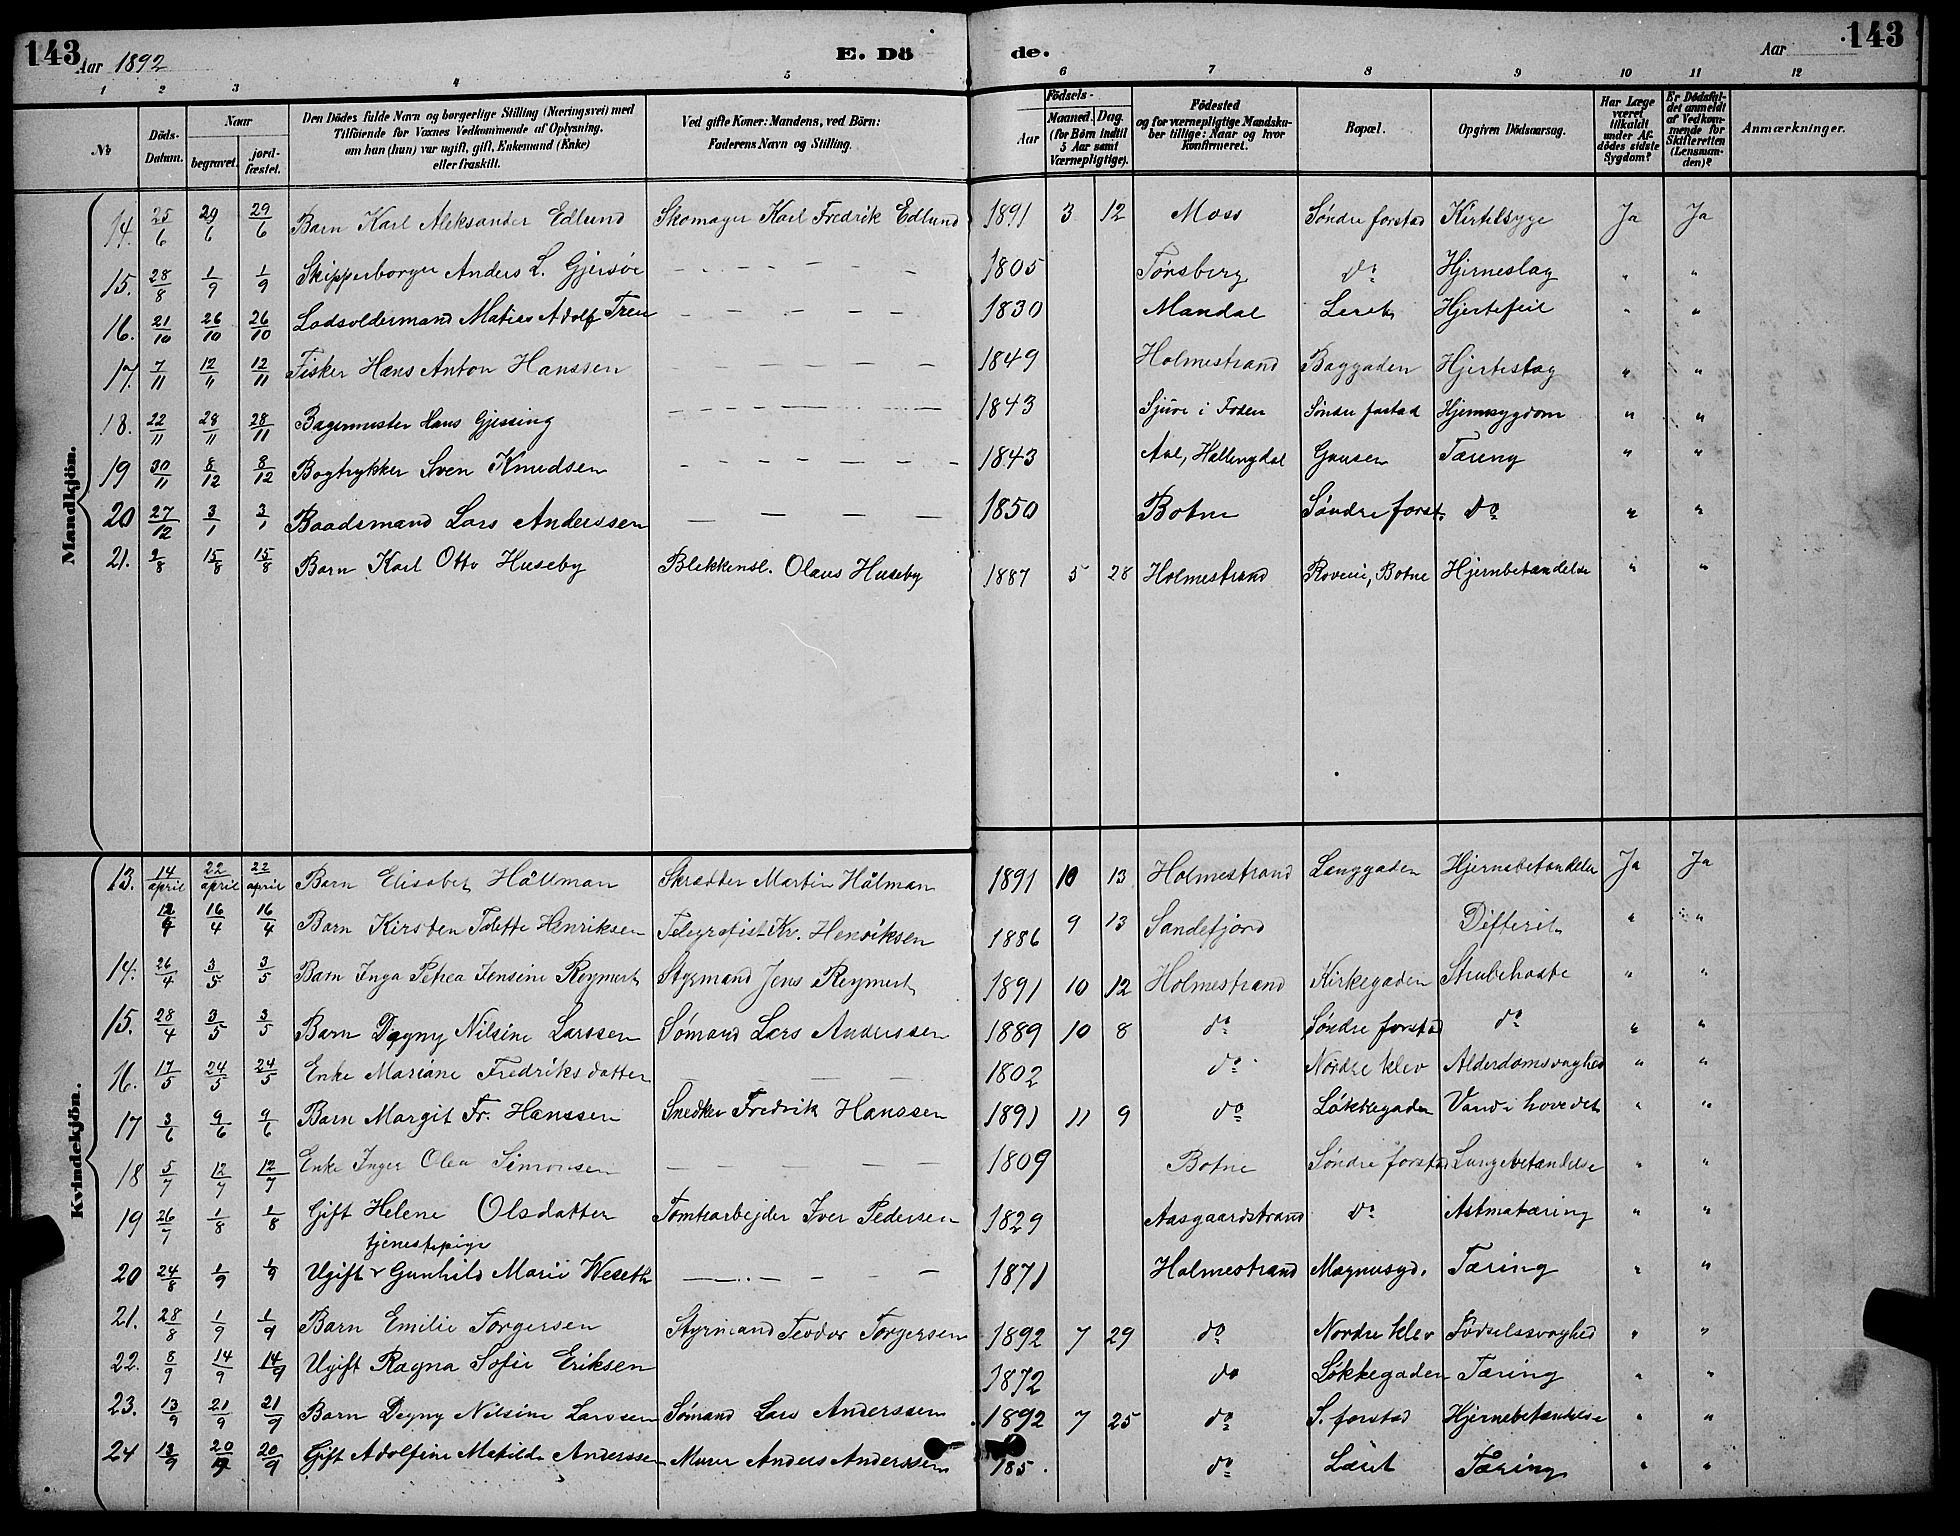 143 Aar 1892 E. Dö de. Aar 143
1 2 3 4 5 6 7 8 9 10 11 12
No Döds-Datum. Naar begravet. jordfæstet. Den Dödes fulde Navn og borgerlige Stilling (Næringsvei) med Tilföiende for Voxnes Vedkommende af Oplysning, om han (hun) var ugift, gift, Enkemand (Enke) eller fraskilt. Ved gifte Koner: Mandens, ved Börn: Faderens Navn og Stilling. Födsels- Aar Maaned. Dag. (for Börn indtil 5 Aar samt Værnepligtige). Födested og for værnepligtige Mandskaber tillige: Naar og hvor konfirmeret. Bopæl. Opgiven Dödsaarsag. Har Læge været tilkaldt under Afdödes sidste Sygdom? Er Dödsfaldet anmeldt af Vedkommende for Skifteretten (Lensmanden)? Anmærkninger.
Mandkjön.
14. 25/6 29/6 29/6 Barn Karl Aleksander Edlund Skomager Karl Fredrik Edlund 1891 3 12 Moss Søndre forstad Kirtelsyge Ja Ja
15. 28/8 1/9 1/9 Skipperborger Anders L. Gjersøe — — — — 1805 Tønsberg do Hjerneslag " "
16. 21/10 26/10 26/10 Lodsoldermand Matias Adolf Tren 1830 Mandal Leret Hjertefeil " "
17. 7/11 12/11 12/11 Fisker Hans Anton Hanssen — — — — 1849 Holmestrand Baggaden Hjerteslag " "
18. 22/11 28/11 28/11 Bagermester Hans Gjessing — — — — 1843 Søndre forstad Hjernesygdom " "
19 30/11 8/12 8/12 Bogtrykker Sven Knudsen — — — — 1843 Aal, Hallingdal Gausen Tæring " "
20 27/12 3/1 3/1 Baadsmand Lars Anderssen — — — — 1850 Botne Søndre forst. do " "
21. 9/8 15/8 15/8 Barn Karl Otto Huseby Blekkensl. Olaus Huseby 1887 5 28 Holmestrand Rovein, Botne Hjernbetændelse " "
Kvindekjön.
13. 14/april 22/april 22/april Barn Elisabet Hållman Skrædder Martin Hålman 1891 10 13 Holmestrand Langgaden Hjernebetændelse Ja Ja
12/4 16/4 16/4 Barn Kirsten Tolette Henriksen Telegrafist Kr. Henriksen 1886 9 13 Sandefjord Difterit " "
14. 26/4 3/5 3/5 Barn Inga Petrea Jensine Reymert Styrmand Jens Reymert 1891 10 12 Holmestrand Kirkegaden Strubehoste " "
15. 28/4 3/5 3/5 Barn Dagny Nilsine Larssen Sømand Lars Anderssen 1889 10 8 do Søndre forstad do " "
16. 17/5 24/5 24/5 Enke Mariane Fredriksdatter — — — — 1802 do Nordre klev Alderdomsvaghed " "
17 3/6 9/6 9/6 Barn Margit Fr. Hanssen Snedker Fredrik Hanssen 1891 11 9 do Løkkegaden Vand i hovedet " "
18 5/7 12/7 12/7 Enke Inger Olea Simonsen — — — — 1809 Botne Søndre forstad Lungebetændelse " "
19 26/7 1/8 1/8 Gift Helene Olsdatter Tomtearbejder Iver Pedersen 1829 Aasgaardstrand do Astmatæring " "
tjenestepige
20 24/8 1/9 1/9 Ugift Gunhild Marie Weseth — — — — 1871 Holmestrand Magnusgd. Tæring " "
21. 28/8 1/9 1/9 Barn Emilie Torgersen Styrmand Teodor Torgersen 1892 7 29 do Nordre klev Fødselssvaghed " "
22. 8/9 14/9 14/9 Ugift Ragna Sofie Eriksen 1872 do Løkkegaden Tæring " "
23. 13/9 21/9 21/9 Barn Dagny Nilsine Larssen Sømand Lars Anderssen 1892 7 25 do S. forstad Hjernebetændelse " "
24 13/9 20/9 20/9 Gift Adolfine Matilde Anderssen Murer Anders Anderssen 185 do Læret Tæring " "